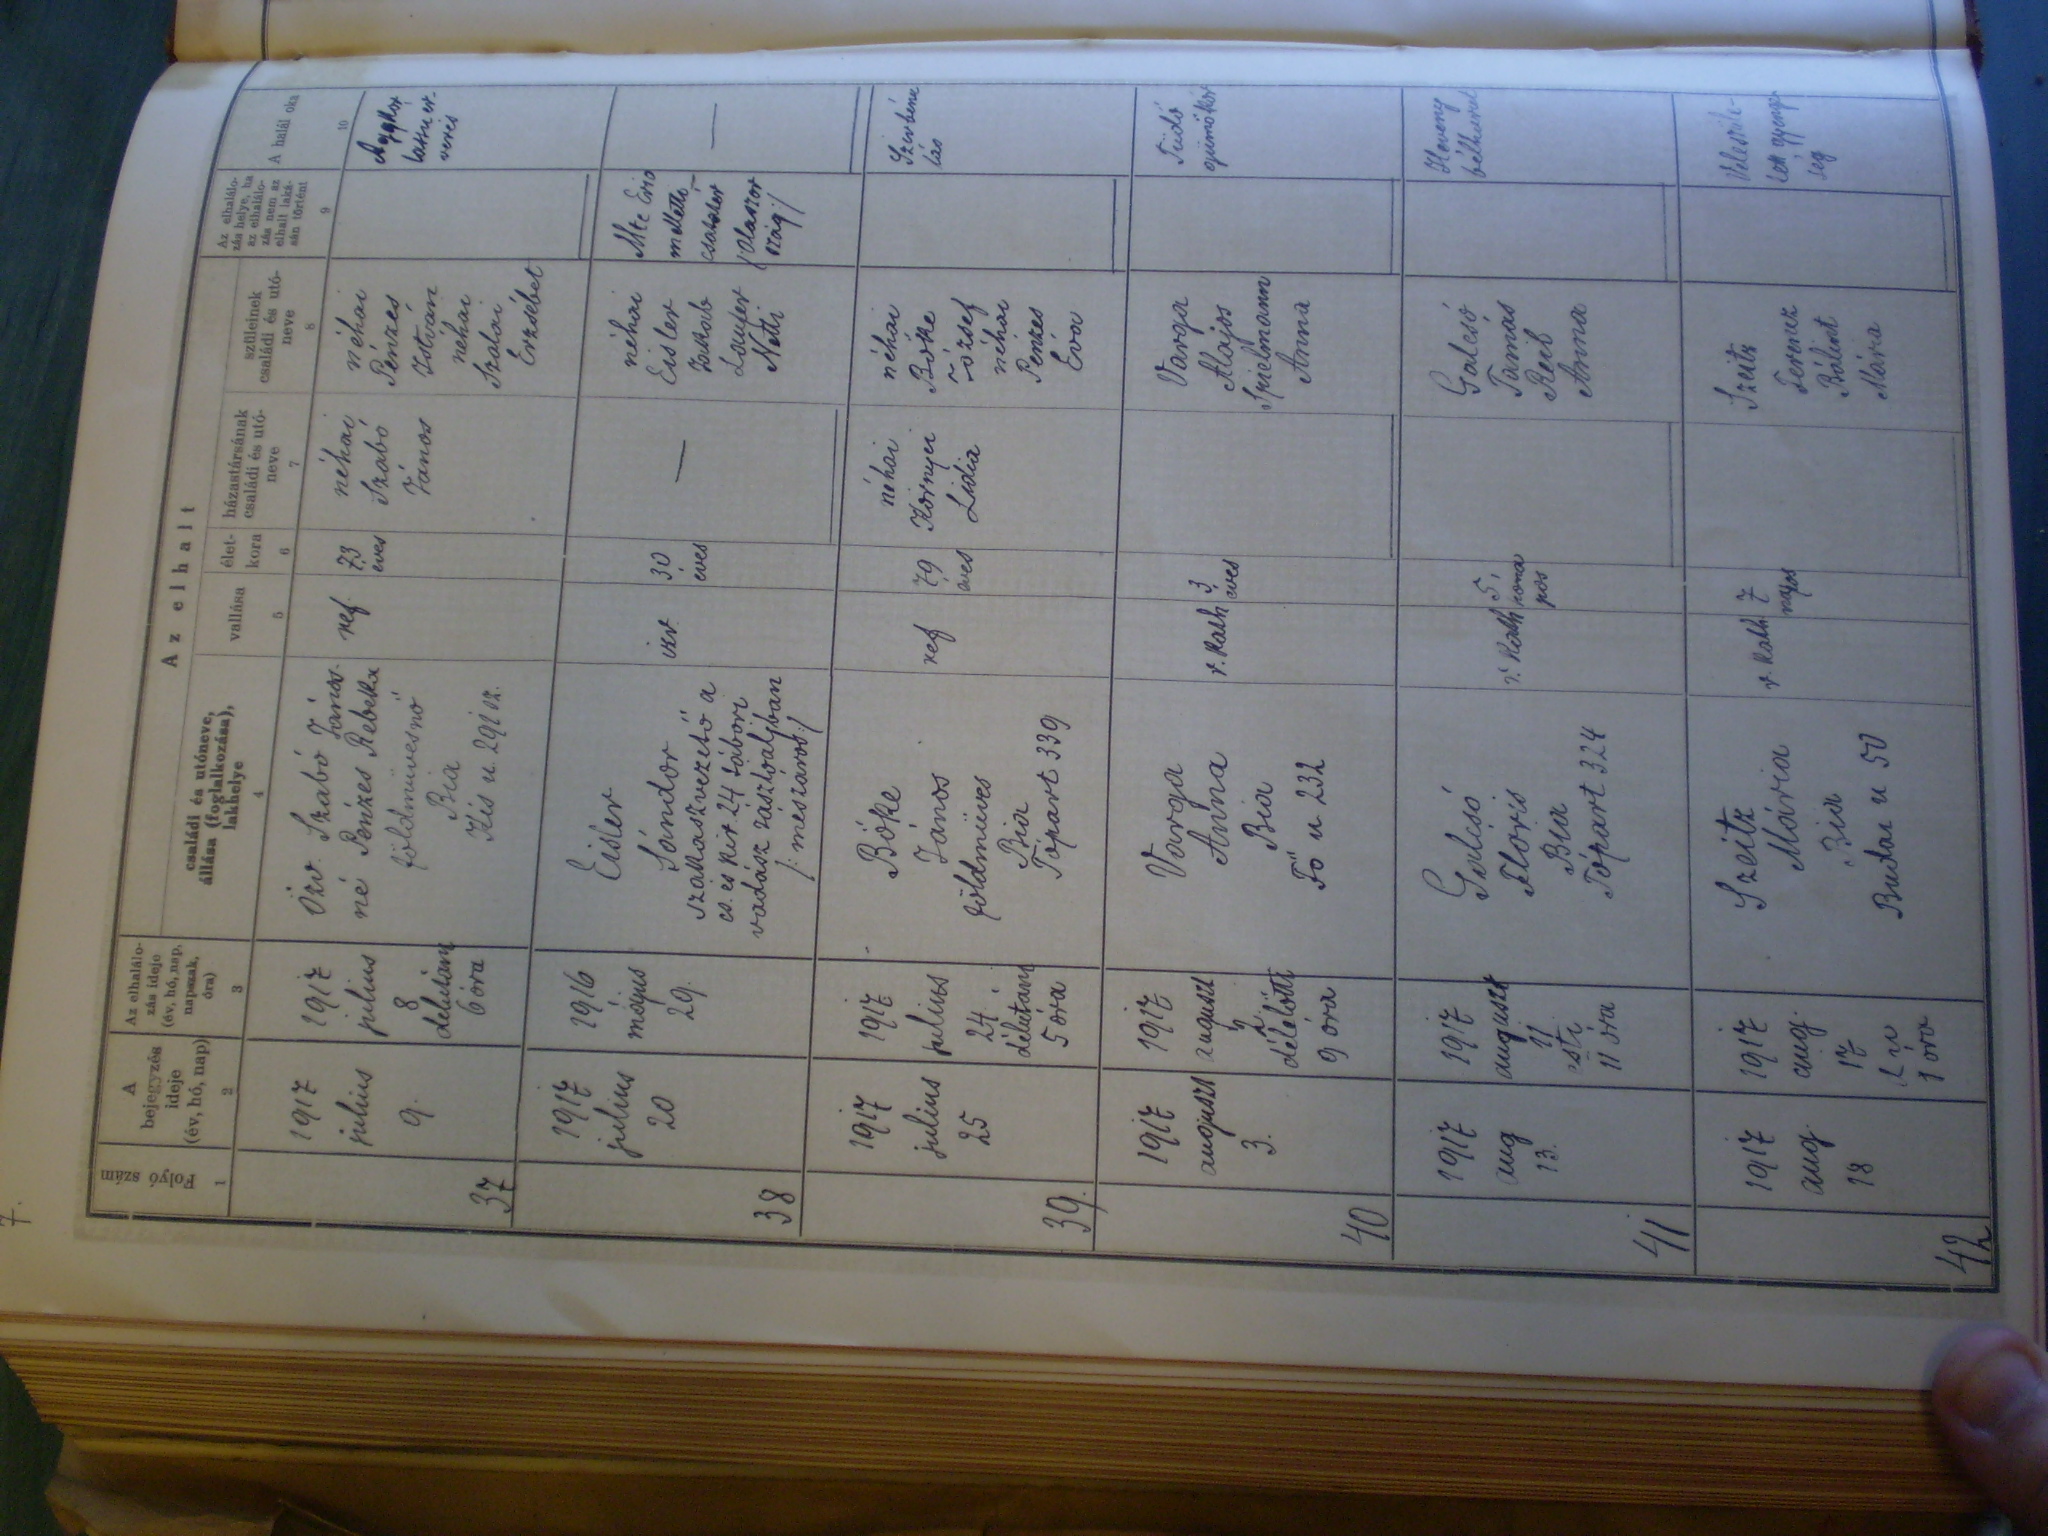 7.
Folyó
szám
A
bejegyzés
ideje
(év, hó, nap)
Az elhalálo-
zás ideje
(év, hó, nap,
napszak,
óra)
Az elhalt
családi és utóneve,
állása (foglalkozása),
lakhelye
vallása
élet-
kora
házastársának
családi és utó-
neve
szüleinek
családi és utó-
neve
Az elhalálo-
zás helye, ha
az elhalálo-
zás nem az
elhalt laká-
sán történt
A halál oka
1
2
3
4
5
6
7
8
9
10
37
1917
július
9.
1917
július
8
délután
6 óra
Özv. Szabó János
né Pénzes Rebeka
földmívesnő
Bia
Kis u. 291 sz.
ref
73
éves
néhai
Szabó
János
néhai
Pénzes
István
néhai
Szalai
Erzsébet
38
1917
július
20
1916
május
29.
Eisler
Sándor
szakaszvezető a
cs. és kir. 24 tábori
vadász zászlóaljban
/: mészáros :/
izr.
30
éves
—
néhai
Eisler
Jakab
Laufer
Netti
Mte Erio
melletti
csatatér
/Olaszor
szág:/
—
39.
1917
július
25
1917
július
24
délután
5 óra
Bőke
János
földmíves
Bia
Tópart 339
ref
79
éves
néhai
Környei
Lidia
néhai
Bőke
József
néhai
Pénzes
Éva
Szívbéna
lás
40
1917
auguszt
3.
1917
auguszt
2
délelőtt
9 óra
Varga
Anna
Bia
Fő u 232
r. kath
3
éves
Varga
Alajos
Spielmann
Anna
Tüdő
gümőkór
41
1917
aug
13.
1917
auguszt
11
esti
11 óra
Galcsó
Flóris
Bia
Tópart 324
r. kath
5
hóna
pos
Galcsó
Tamás
Reeb
Anna
Heveny
bélhurut
42
1917
aug.
18
1917
aug.
17
1 óra
Szeitz
Mária
Bia
Budai u 50
r. kath
7
napos
Szeitz
Ferencz
Bálint
Mária
Veleszüle-
tett gyenge
ség